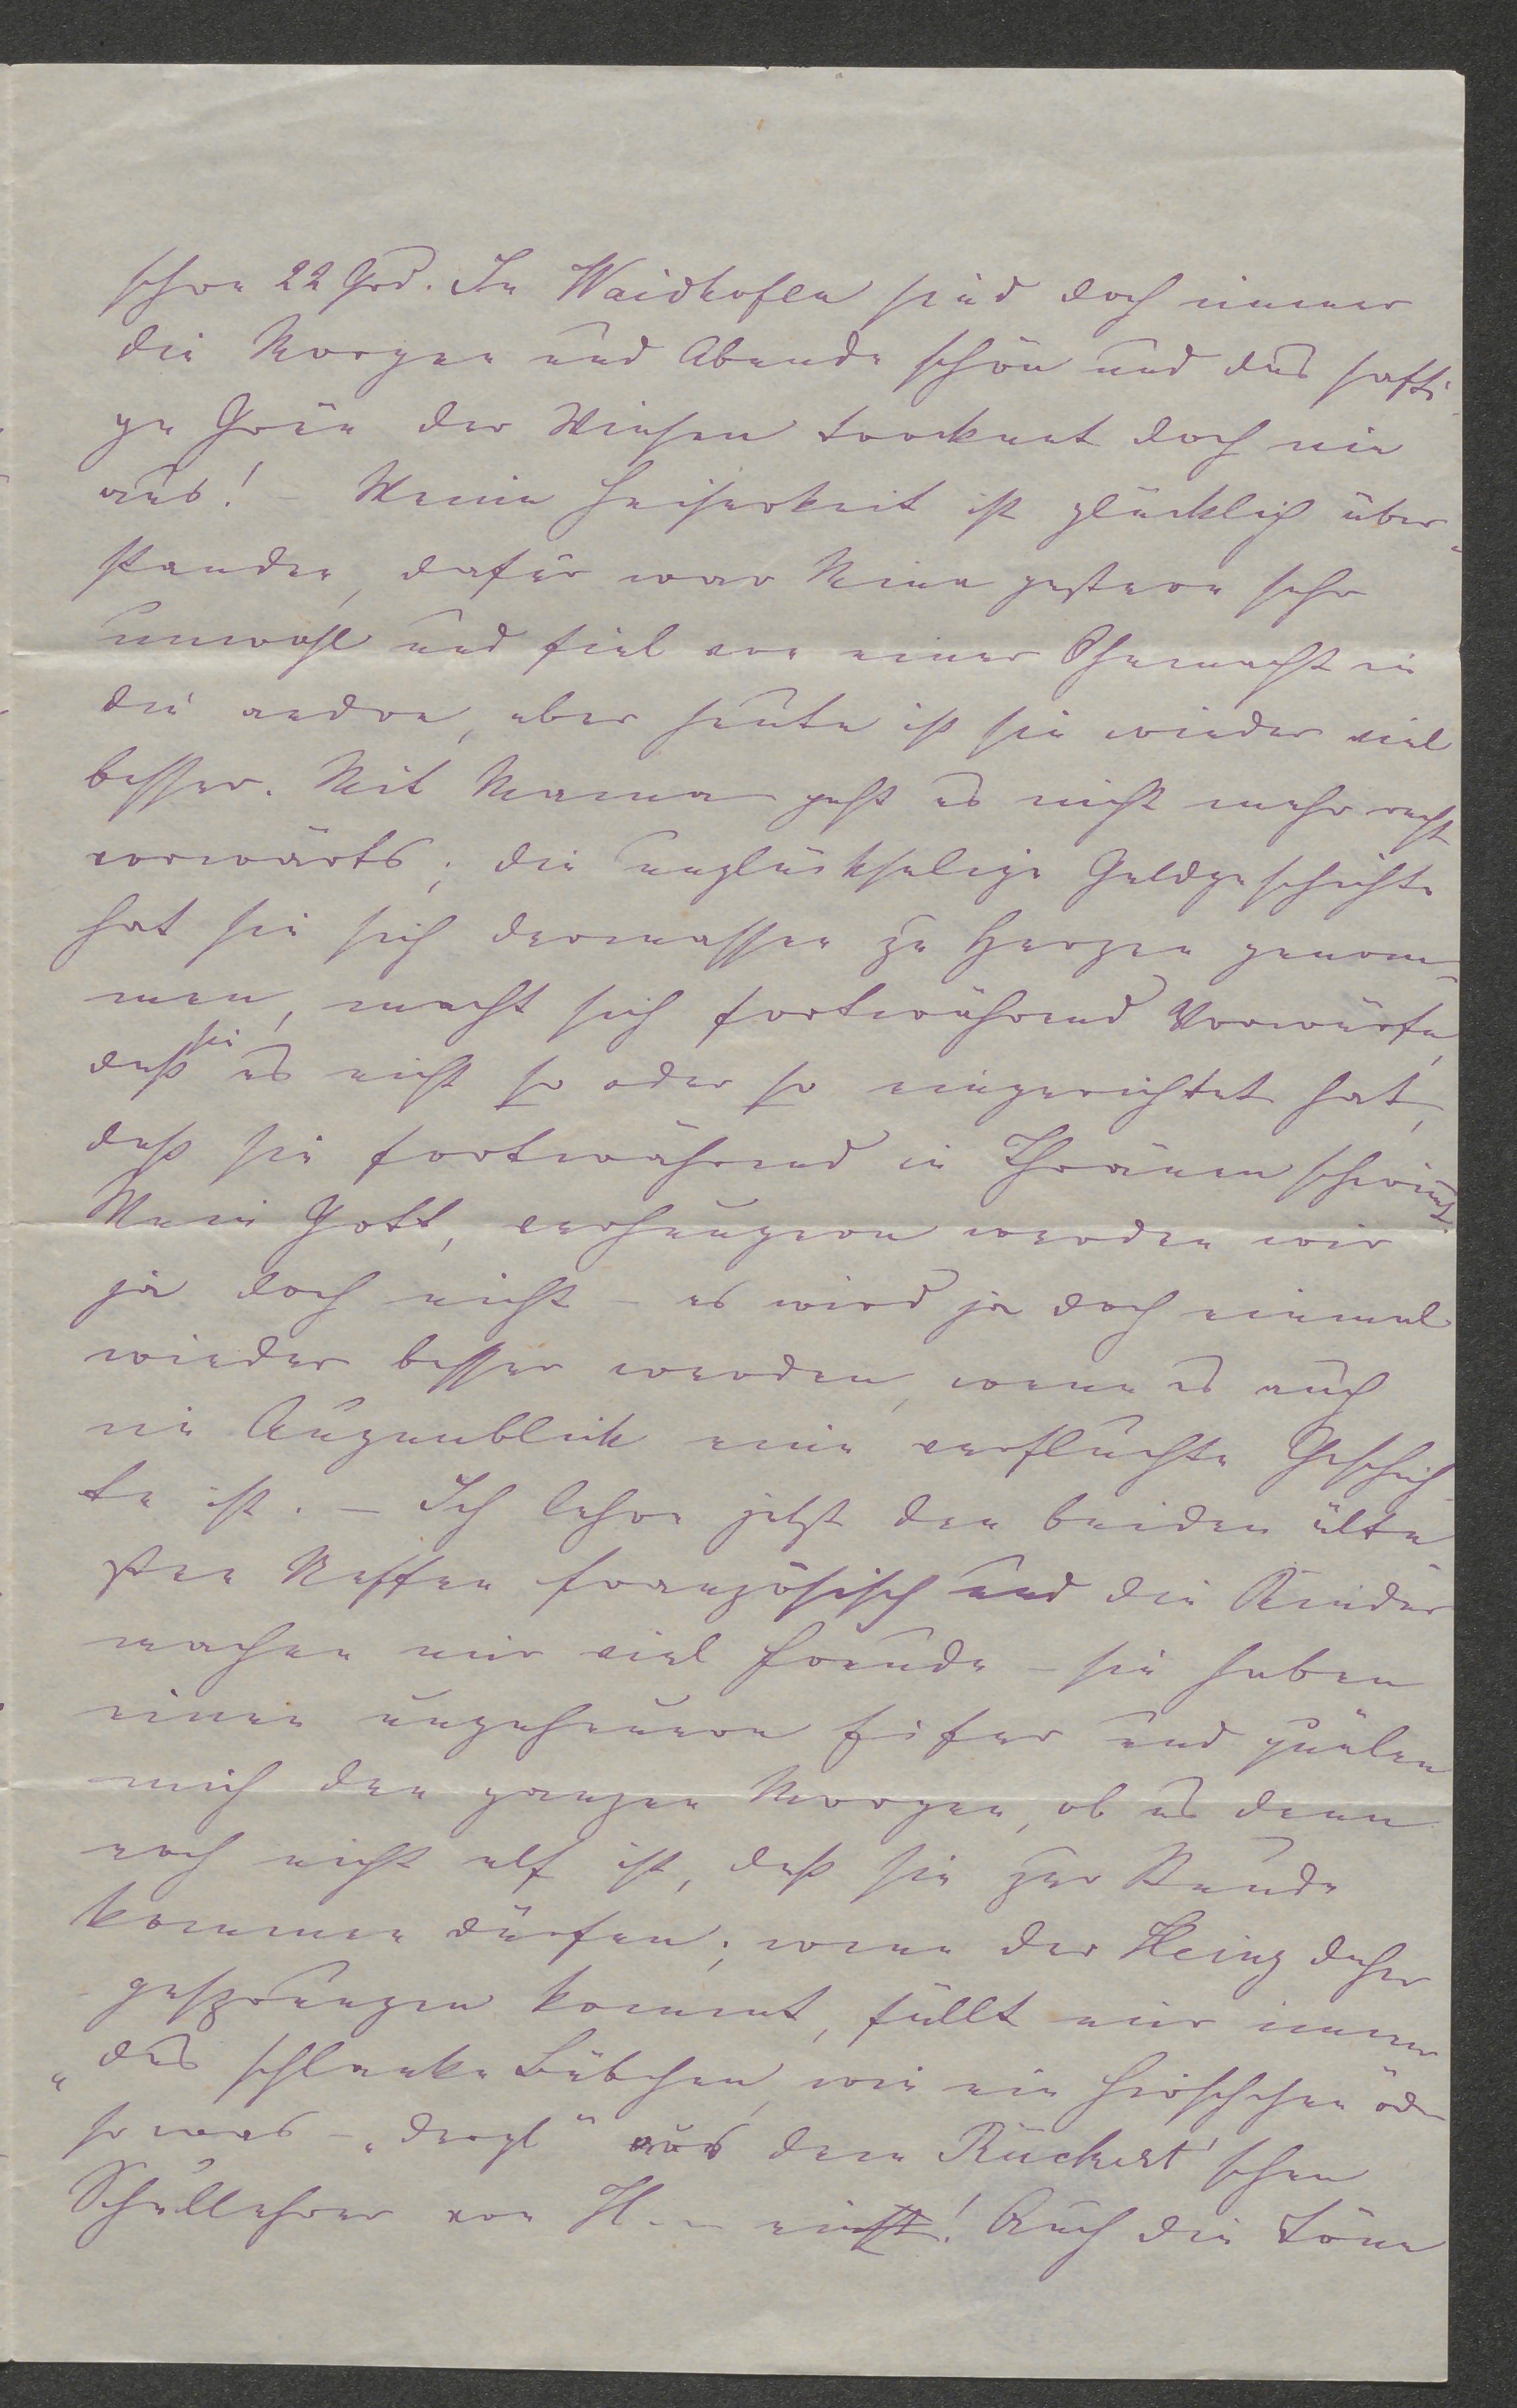 schon 22 Grd. In Waidhofen sind doch immer
die Morgen und Abende schön und das safti-
ge Grün der Wiesen trocknet doch nie
aus! – Meine Heiserkeit ist glücklich über-
standen, dafür war Mina gestern sehr
unwohl und fiel von einer Ohnmacht in
die andre, aber heute ist sie wieder viel
besser. Mit Mama geht es nicht mehr recht
vorwärts; die unglückselige Geldgeschichte
hat sie sich dermassen zu Herzen genom-
men, macht sich fortwährend Vorwürfe,
daß sie es nicht so oder so eingerichtet hat,
daß sie fortwährend in Thränen schwimt.
Mein Gott, verhungern werden wir
ja doch nicht – es wird ja doch einmal
wieder besser werden, wenn es auch
im Augenblick eine verfluchte Geschich-
te ist. – Ich lehre jetzt den beiden älte-
sten Neffen französisch und die Kinder
machen mir viel Freude – sie haben
einen ungeheuren Eifer und quälen
mich den ganzen Morgen, ob es denn
noch nicht elf ist, daß sie zur Stunde
kommen dürfen; wenn der Heinz daher
gesprungen kommt, fällt mir immer
„das schlanke Bübchen, wie ein Hirschchen oder
so was – „dergl“ aus dem Rückert'schen
Schullehrer von H... ein! Auch die Töne